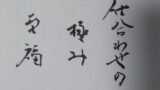 仕合わせの
極み
至福